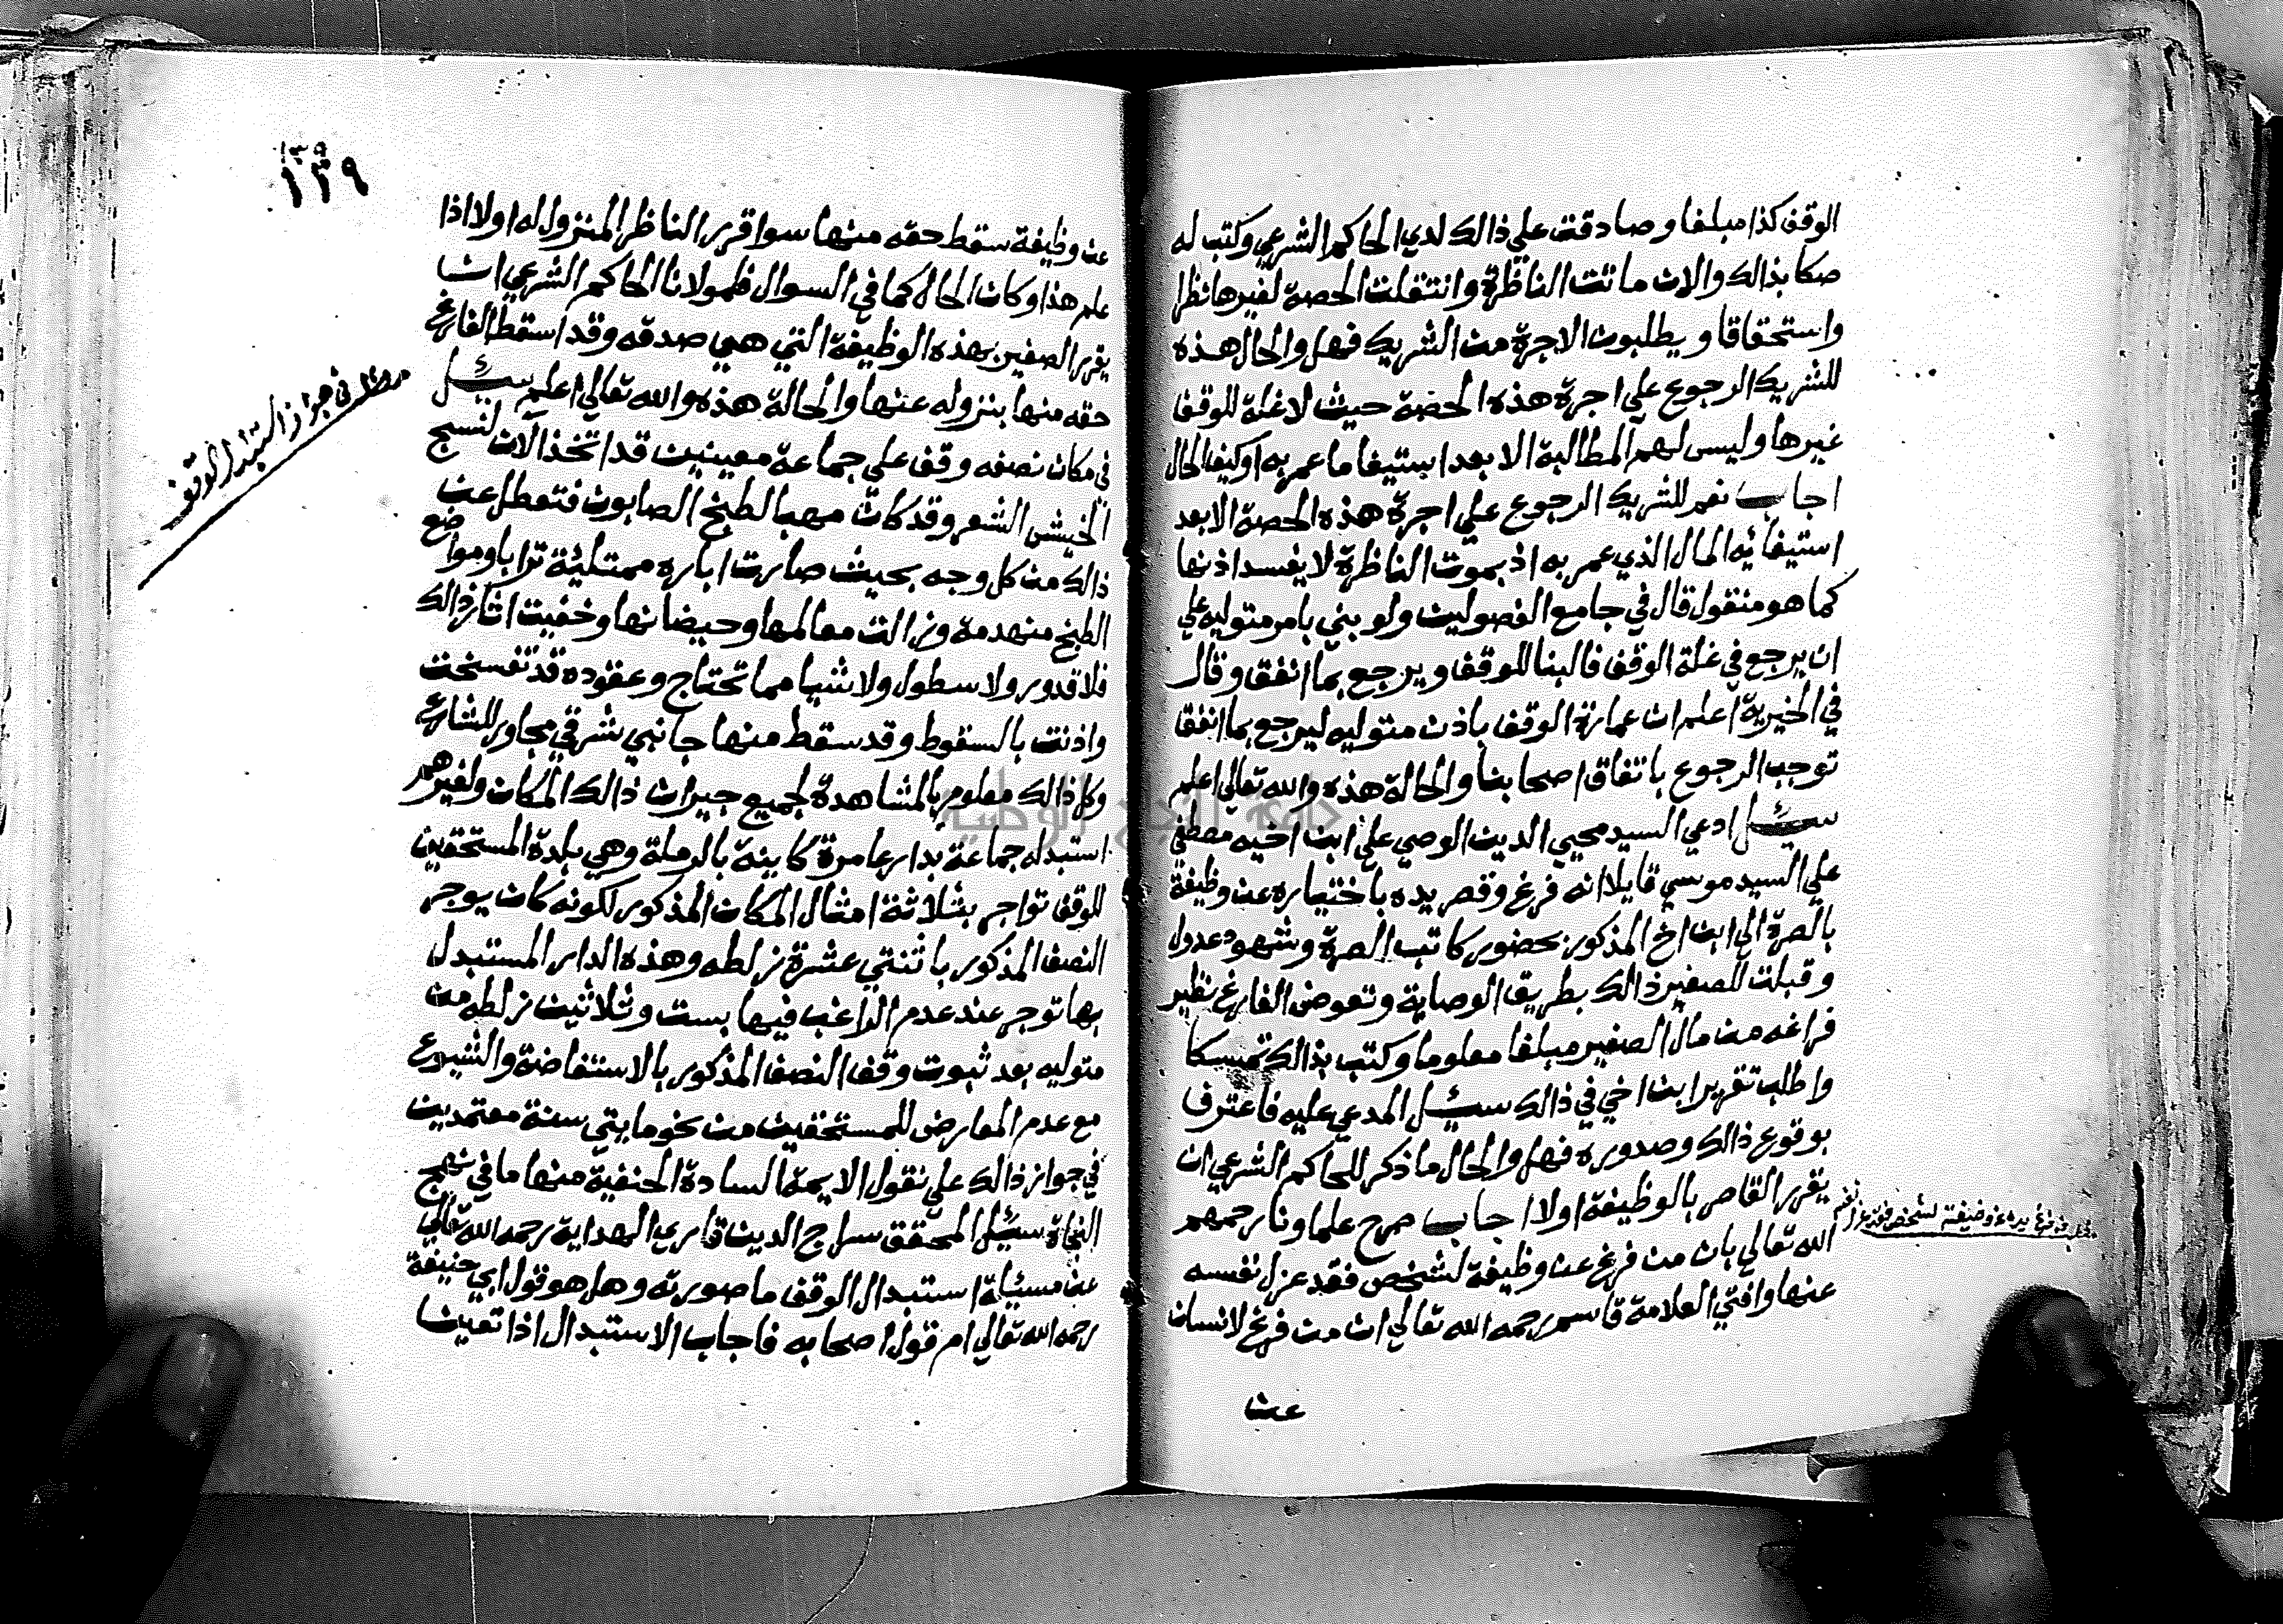 الوقف كذا مبلغا وصادقت علي ذالك لدي الحاكم الشرعي وكتب له
صكا بذالك والان ماتت الناظرة وانتقلت الحصة لغيرها نظرا
واستحقاقا ويطلبون الاجرة من الشريك فهل والحال هذه
للشريك الرجوع علي اجرة هذه الحصة حيث لا غلة للوقف
غيرها وليس لهم المطالبة الا بعد استيفا ما عمر به اوكيف الحال
اجاب نعم للشريك الرجوع علي اجرة هذه الحصة الا بعد
استيفائه المال الذي عمر به اذ بموت الناظرة لا يفسد اذنها
كما هو منقول قال في جامع الفصولين ولو بني بامر متوليه علي
ان يرجع في غلة الوقف فالبنا للوقف ويرجع بما انفق وقال
في الخيرية اعلم ان عمارة الوقف باذن متوليه ليرجع بما انفق
توجب الرجوع باتفاق اصحابنا والحالة هذه والله تعالي اعلم
سئل ادعي السيد محيي الدين الوصي علي ابن اخيه مصطفي
علي السيد موسي قايلا انه فرغ وقصر يده باختياره عن وظيفة
بالصرة الي ابن اخ المذكور بحضور كاتب الصرة وشهود عدول
وقبلت للصغير ذالك بطريق الوصاية وتعوض الفارغ نظير
فراغه من مال الصغير مبلغا معلوما وكتب بذالك تمسكا
واطلب تقرير ابن اخي في ذالك سئل المدعي عليه فاعترف
بوقوع ذالك وصدوره فهل والحال ما ذكر للحاكم الشرعي ان
يقرر القاصر بالوظيفة اولا اجاب صرح علماونا رحمهم
الله تعالي بان من فرغ عن وظيفة لشخص فقد عزل نفسه
عنها وافتي العلامة قاسم رحمه الله تعالي ان من فرغ لانسان
عن
١٣٩
١٣٩
عن وظيفة سقط حقه منها سوا قرر الناظر المنزول له اولا اذا
علم هذا وكان الحال كما في السوال فلمولانا الحاكم الشرعي ان
يقرر الصغير بهذه الوظيفة التي هي صدقه وقد اسقط الفارغ
حقه منها بنزوله عنها والحالة هذه والله تعالي اعلم سئل
في مكان نصفه وقف علي جماعة معينين قد اتخذ الان لنسج
الخيش الشعر وقد كان مهيا لطبخ الصابون فتعطل عن
ذالك من كل وجه بحيث صارت اباره ممتلية ترابا ومواضع
الطبخ منهدمة وزالت معالمها وحيضانها وخفيت اثار ذالك
فلا قدور ولا سطول ولا شيا مما تحتاج وعقوده قد تفسخت
واذنت بالسقوط وقد سقط منها جانبي شرقي مجاور للشارع
وكل ذالك معلوم بالمشاهدة لجميع جيران ذالك المكان ولغيرهم
استبدله جماعة بدار عامرة كاينة بالرملة وهي بلدة المستحقين
للوقف تواجر بثلاثة امثال المكان المذكور لكونه كان يوجر
النصف المذكور باثنتي عشرة زلطه وهذه الدار المستبدل
بها توجر عند عدم الراغب فيها بست وثلاثين زلطه من
متوليه بعد ثبوت وقف النصف المذكور بالاستفاضة والشيوع
مع عدم المعارض للمستحقين من نحو مايتي سنة معتمدين
في جواز ذالك علي نقول الايمة السادة الحنفية منها ما في نهج
النجاة سئل المحقق سراج الدين قارئ الهداية رحمه الله تعالي
عن مسئلة استبدال الوقف ما صورته وهل هو قول ابي حنيفة
رحمه الله تعالي ام قول اصحابه فاجاب الاستبدال اذا تعين